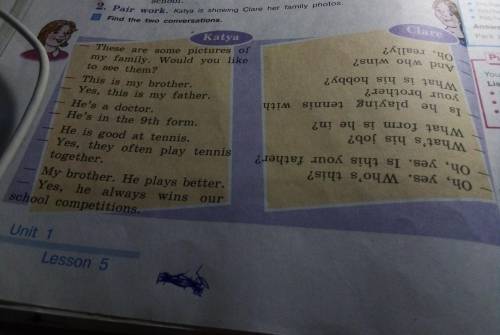 school.
2. Pair work. Katya is showing Clare her family photos.
Find the two conversations.
Katya
– These are some pictures of
my family. Would you like
to see them?
– This is my brother.
– Yes, this is my father.
– He's a doctor.
– He's in the 9th form.
– He is good at tennis.
– Yes, they often play tennis
together.
– My brother. He plays better.
– Yes, he always wins our
school competitions.
Clare
– Oh, yes. Who's this?
– Oh, yes. Is this your father?
– What's his job?
– What form is he in?
– Is he playing tennis with
your brother?
– What is his hobby?
– And who wins?
– Oh, really?
Unit 1
Lesson 5